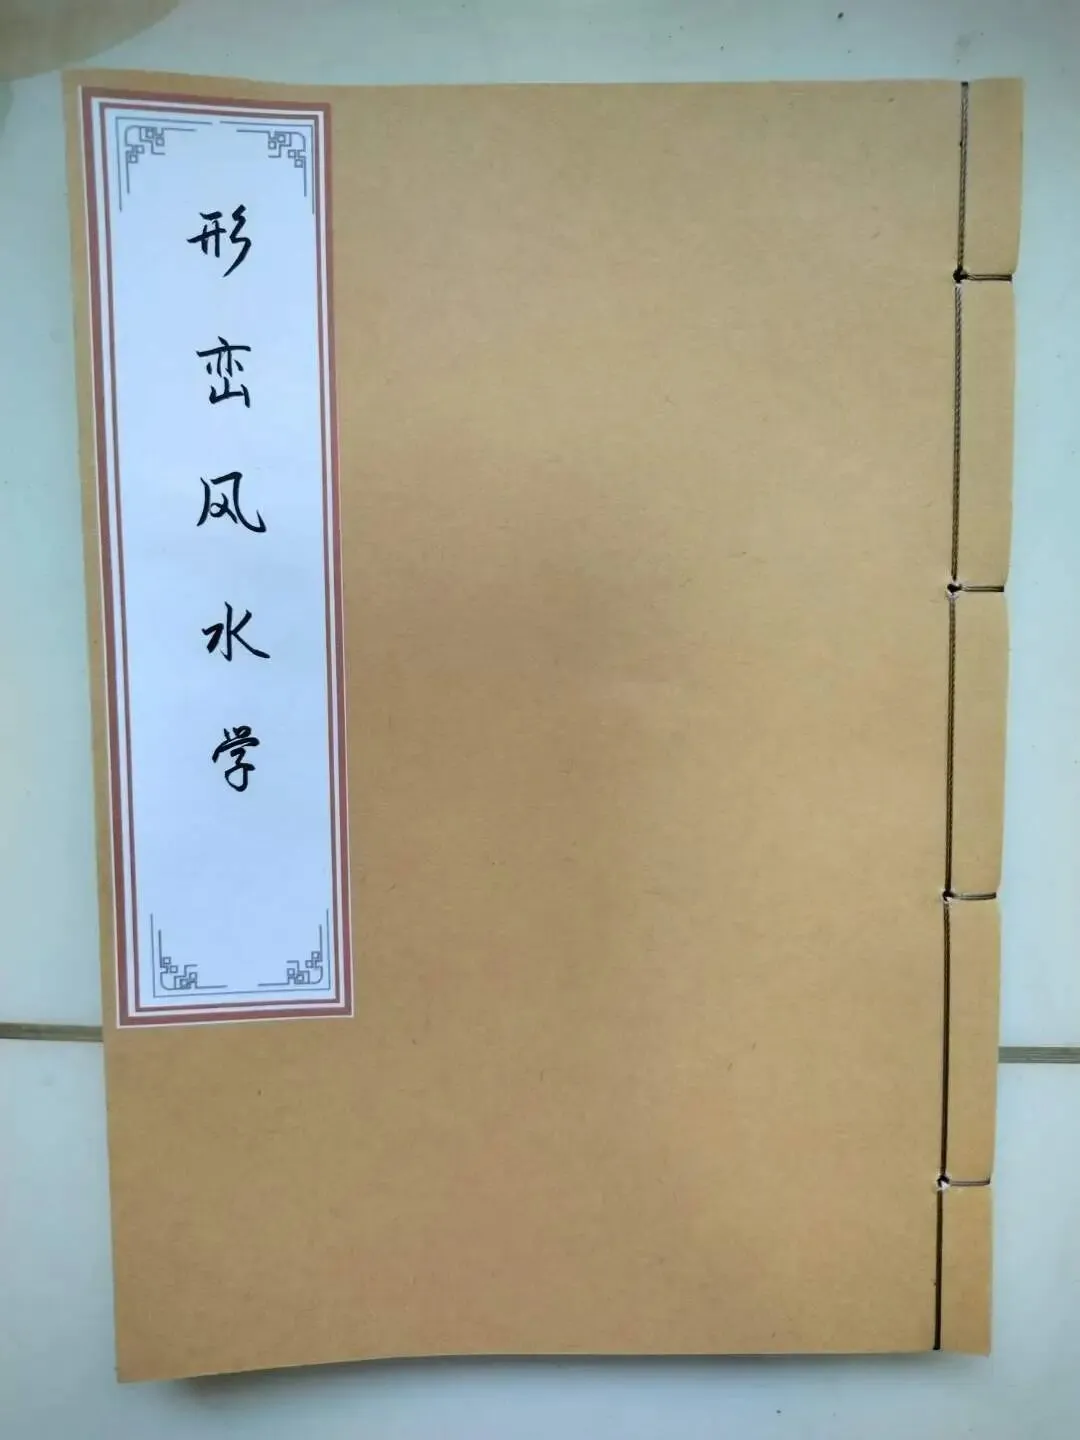 形峦风水学